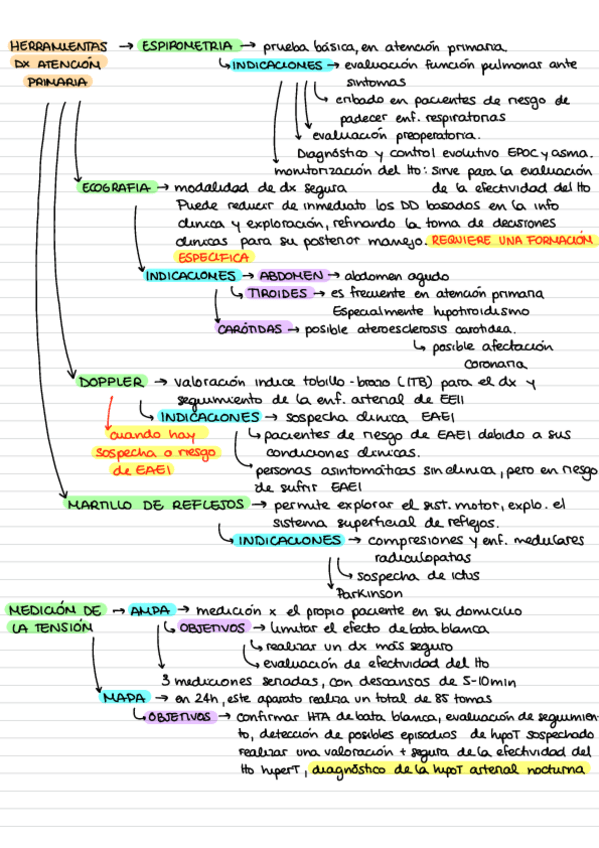 HERRAMIENTAS → ESPIROMETRIA → prueba básica, en atención primaria
DX ATENCIÓN
PRIMARIA
INDICACIONES → evaluación función pulmonar ante
sintomas
cribado en pacientes de riesgo de
padecer enf. respiratorias
evaluación preoperatoria.
Diagnóstico y control evolutivo EPOC y asma.
monitorización del tto: sirve para la evaluación
de la efectividad del tto
ECOGRAFIA → modalidad de dx segura
Puede reducir de inmediato los DD basados en la info
clinica y exploración, refinando la toma de decisiones
clinicas para su posterior manejo. REQUIERE UNA FORMACIÓN
ESPECÍFICA
INDICACIONES → ABDOMEN → abdomen agudo
TIROIDES → es frecuente en atención primaria
Especialmente hipotiroidismo
CARÓTIDAS → posible ateroesclerosis carotidea.
posible afectación
coronaria
DOPPLER → valoración indice tobillo-brazo (ITB) para el dx y
seguimiento de la enf. arterial de EEII
INDICACIONES → sospecha clinica EAEI
cuando hay
sospecha o riesgo
de EAEI
pacientes de riesgo de EAEI debido a sus
condiciones clinicas.
personas asintomáticas sin clinica, pero en riesgo
de sufrir EAEI
MARTILLO DE REFLEJOS → permite explorar el sist. motor, explo. el
sistema superficial de reflejos.
INDICACIONES → compresiones y enf. medulares
radiculopatas
sospecha de ictus
Parkinson
MEDICIÓN DE → AMPA → medición x el propio paciente en su domicilio
LA TENSIÓN
OBJETIVOS → limitar el efecto de bata blanca
realizar un dx más seguro
evaluación de efectividad del tto
3 mediciones seriadas, con descansos de 5-10min
MAPA → en 24h, este aparato realiza un total de 85 tomas
OBJETIVOS → confirmar HTA de bata blanca, evaluación de seguimien-
to, detección de posibles episodios de hipoT sospechado
realizar una valoración + segura de la efectividad del
tto hiperT, diagnóstico de la hipoT arterial nocturna